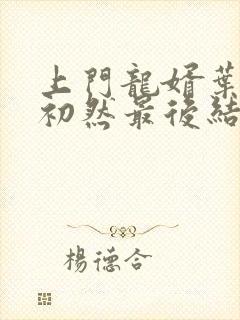 上門龍婿葉
初然最後結
楊德合